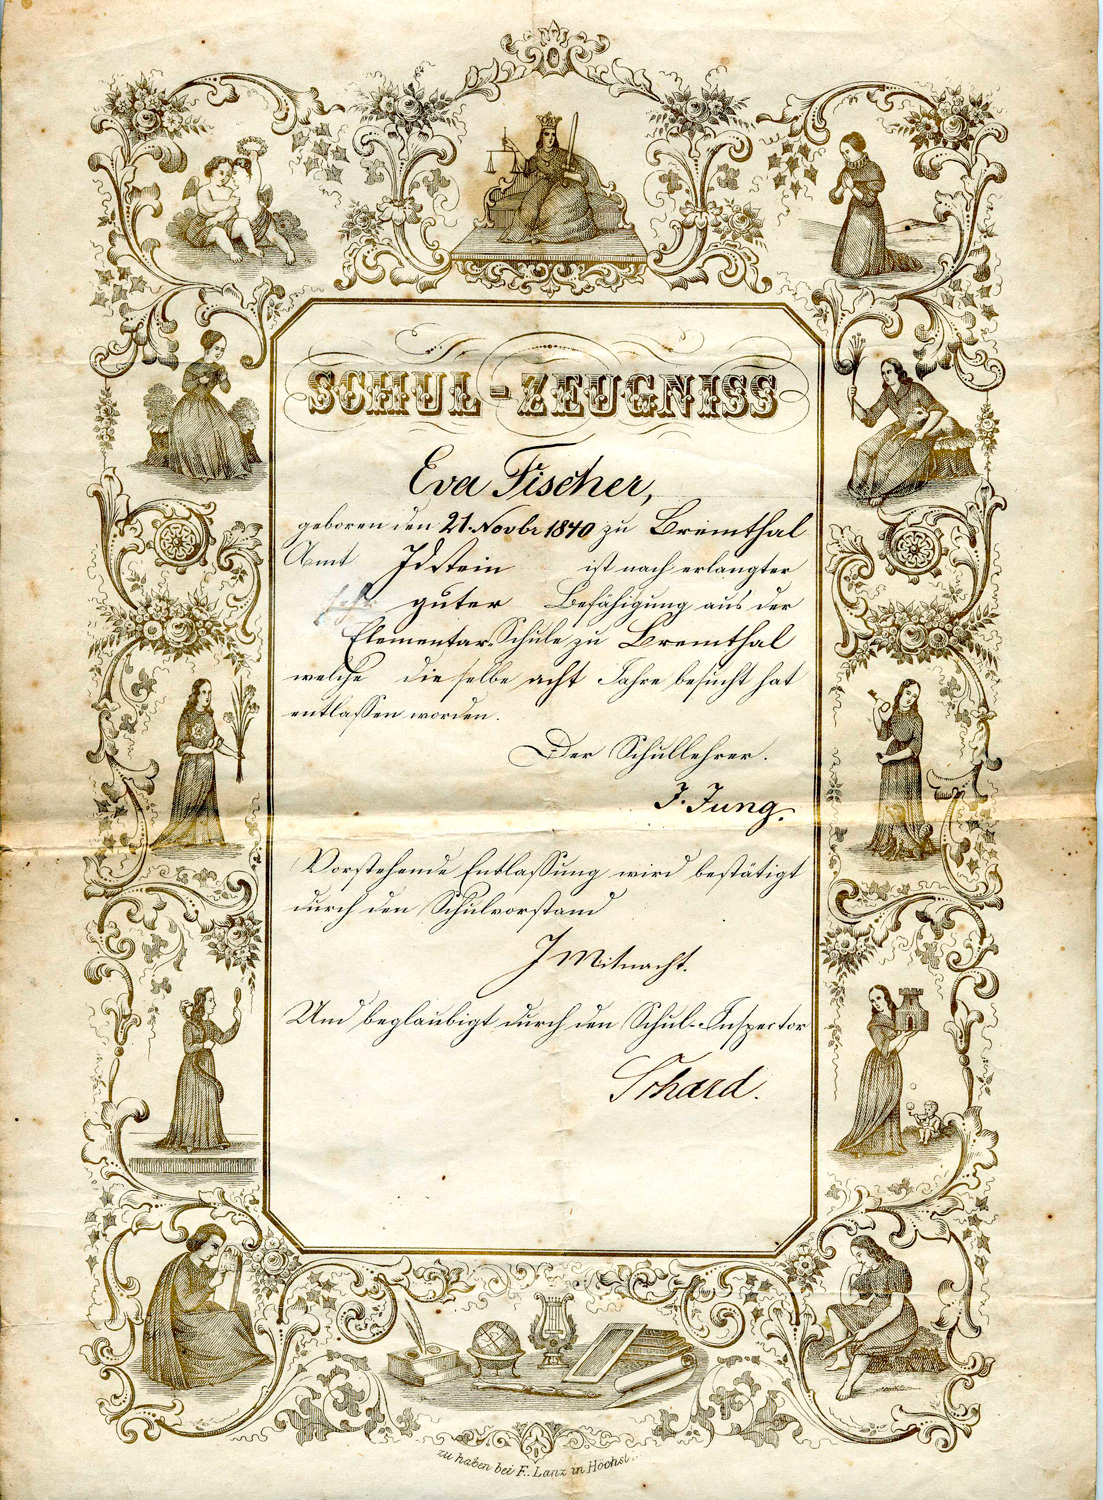 SCHUL-ZEUGNISS
Eva Fischer,
geboren den 21. Novbr 1840 zu Bremthal
Amt Idstein ist nach erlangter
guter Befähigung aus der
Elementar-Schule zu Bremthal
welche dieselbe acht Jahre besucht hat
entlassen worden.
Der Schullehrer.
J. Jung.
Vorstehende Entlassung wird bestätigt
durch den Schulvorstand
J Mitnacht.
Und beglaubigt durch den Schul-Inspector
zu haben bei F. Lanz in Höchst.